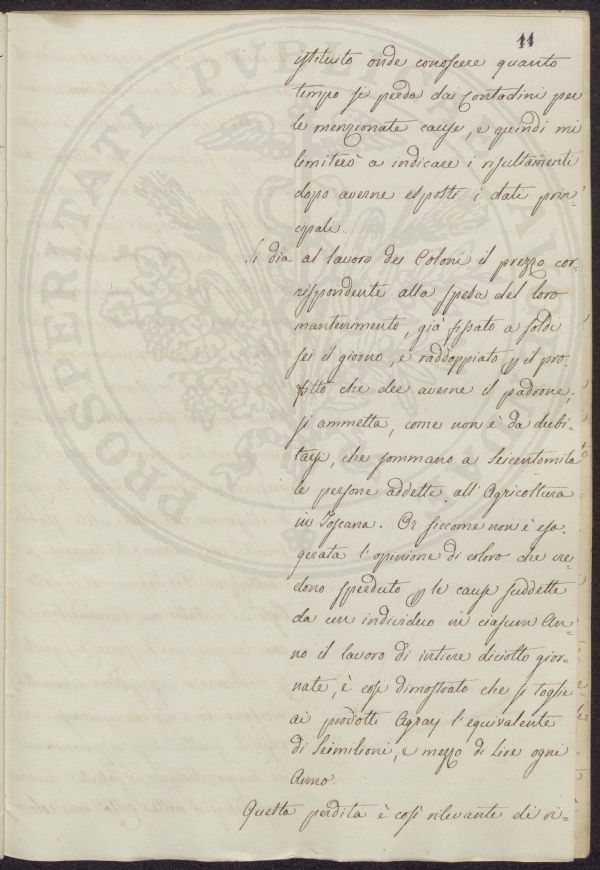 11
istituito onde conoscere quanto
tempo si perda dai Contadini per
le menzionate cause, e quindi mi
limiterò a indicare i risultamenti
dopo averne esposti i dati prin-
cipali.
Si dia al lavoro dei Coloni il prezzo cor-
rispondente alla spesa del loro
mantenimento, già fissato a soldi
sei il giorno, e raddoppiato p il pro-
fitto che dee averne il padrone;
si ammetta, come non è da dubi-
tarsi, che sommano a Seicentomila
le persone addette all'Agricoltura
in Toscana. Or siccome non è esa-
gerata l'opinione di coloro che cre-
dono sperduto p le cause suddette
da un individuo in ciascun An-
no il lavoro di intiere diciotto gior-
nate, è così dimostrato che si toglie
ai prodotti Agrarj l'equivalente
di Seimilioni, e mezzo di Lire ogni
Anno.
Questa perdita è così rilevante di ri-
PROSPERITATI PUBLICAE